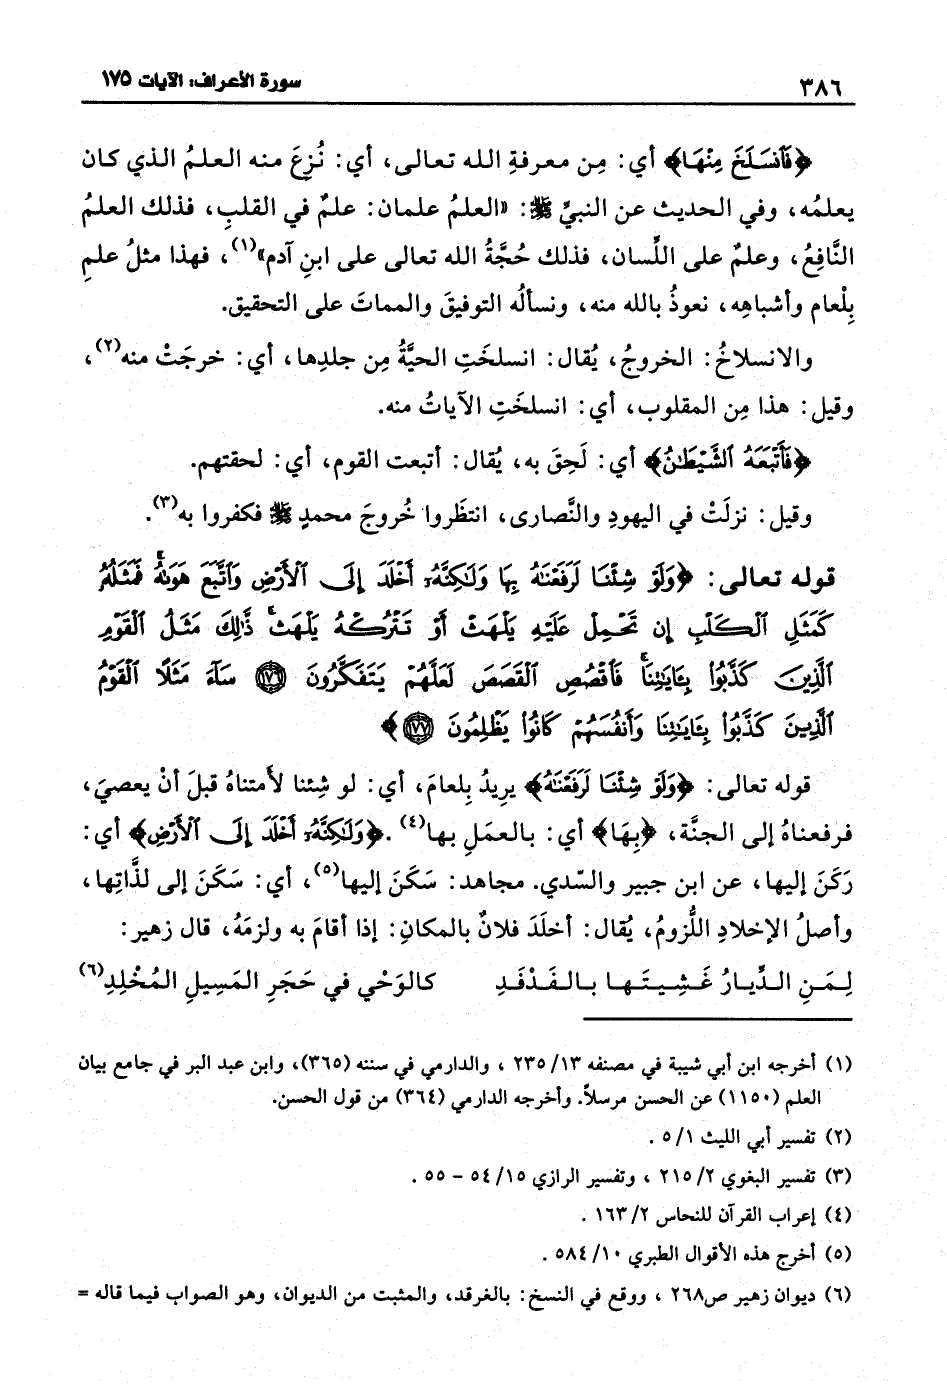 ٣٨٦ سورة الأعراف: الآيات ١٧٥
﴿فَٱنسَلَخَ مِنْهَا﴾ أي: مِن معرفةِ الله تعالى، أي: نُزِعَ منه العلمُ الذي كان
يعلمُه، وفي الحديث عن النبيِّ ﷺ: «العلمُ علمان: علمٌ في القلبِ، فذلك العلمُ
النَّافِعُ، وعلمٌ على اللِّسان، فذلك حُجَّةُ الله تعالى على ابنِ آدم»(١)، فهذا مثلُ علمِ
بِلْعام وأشباهِه، نعوذُ بالله منه، ونسألُه التوفيقَ والمماتَ على التحقيق.
والانسلاخُ: الخروجُ، يُقال: انسلخَتِ الحيَّةُ مِن جلدِها، أي: خرجَتْ منه(٢)،
وقيل: هذا مِن المقلوب، أي: انسلخَتِ الآياتُ منه.
﴿فَأَتْبَعَهُ ٱلشَّيْطَٰنُ﴾ أي: لَحِقَ به، يُقال: أتبعت القوم، أي: لحقتهم.
وقيل: نزلَتْ في اليهودِ والنَّصارى، انتظَروا خُروجَ محمدٍ ﷺ فكفروا به(٣).
قوله تعالى: ﴿وَلَوْ شِئْنَا لَرَفَعْنَٰهُ بِهَا وَلَٰكِنَّهُۥٓ أَخْلَدَ إِلَى ٱلْأَرْضِ وَٱتَّبَعَ هَوَىٰهُ ۚ فَمَثَلُهُۥ
كَمَثَلِ ٱلْكَلْبِ إِن تَحْمِلْ عَلَيْهِ يَلْهَثْ أَوْ تَتْرُكْهُ يَلْهَث ۚ ذَّٰلِكَ مَثَلُ ٱلْقَوْمِ
ٱلَّذِينَ كَذَّبُوا۟ بِـَٔايَٰتِنَا ۚ فَٱقْصُصِ ٱلْقَصَصَ لَعَلَّهُمْ يَتَفَكَّرُونَ ۝١٧٦ سَآءَ مَثَلًا ٱلْقَوْمُ
ٱلَّذِينَ كَذَّبُوا۟ بِـَٔايَٰتِنَا وَأَنفُسَهُمْ كَانُوا۟ يَظْلِمُونَ ۝١٧٧﴾
قوله تعالى: ﴿وَلَوْ شِئْنَا لَرَفَعْنَٰهُ﴾ يريدُ بلعامَ، أي: لو شِئنا لأَمتناهُ قبلَ أنْ يعصيَ،
فرفعناهُ إلى الجنَّة، ﴿بِهَا﴾ أي: بالعمَلِ بها(٤). ﴿وَلَٰكِنَّهُۥٓ أَخْلَدَ إِلَى ٱلْأَرْضِ﴾ أي:
رَكَنَ إليها، عن ابن جبير والسّدي. مجاهد: سَكَنَ إليها(٥)، أي: سَكَنَ إلى لذَّاتِها،
وأصلُ الإخلادِ اللُّزومُ، يُقال: أخلَدَ فلانٌ بالمكانِ: إذا أقامَ به ولزمَهُ، قال زهير:
لِـمَـنِ الـدِّيـارُ غَـشِـيـتَـهـا بـالـفَـدْفَـدِ كالوَحْي في حَجَرِ المَسِيلِ المُخْلِدِ(٦)
(١) أخرجه ابن أبي شيبة في مصنفه ١٣/ ٢٣٥ ، والدارمي في سننه (٣٦٥)، وابن عبد البر في جامع بيان
العلم (١١٥٠) عن الحسن مرسلاً. وأخرجه الدارمي (٣٦٤) من قول الحسن.
(٢) تفسير أبي الليث ١/ ٥ .
(٣) تفسير البغوي ٢/ ٢١٥ ، وتفسير الرازي ١٥/ ٥٤ - ٥٥ .
(٤) إعراب القرآن للنحاس ٢/ ١٦٣ .
(٥) أخرج هذه الأقوال الطبري ١٠/ ٥٨٤ .
(٦) ديوان زهير ص٢٦٨ ، ووقع في النسخ: بالغرقد، والمثبت من الديوان، وهو الصواب فيما قاله =